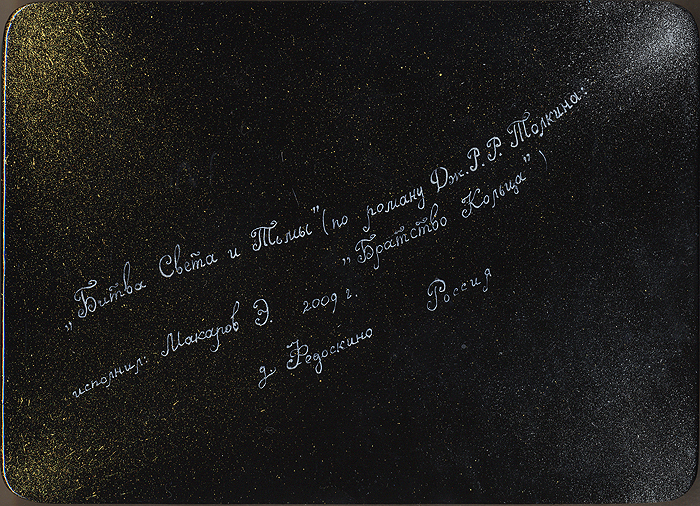 „Битва Света и Тьмы" (по роману Дж. Р. Р. Толкина:
„Братство Кольца")
исполнил: Макаров Э. 2009 г.
д Федоскино Россия